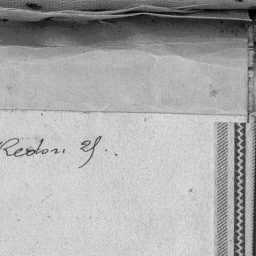 Redon 2f.